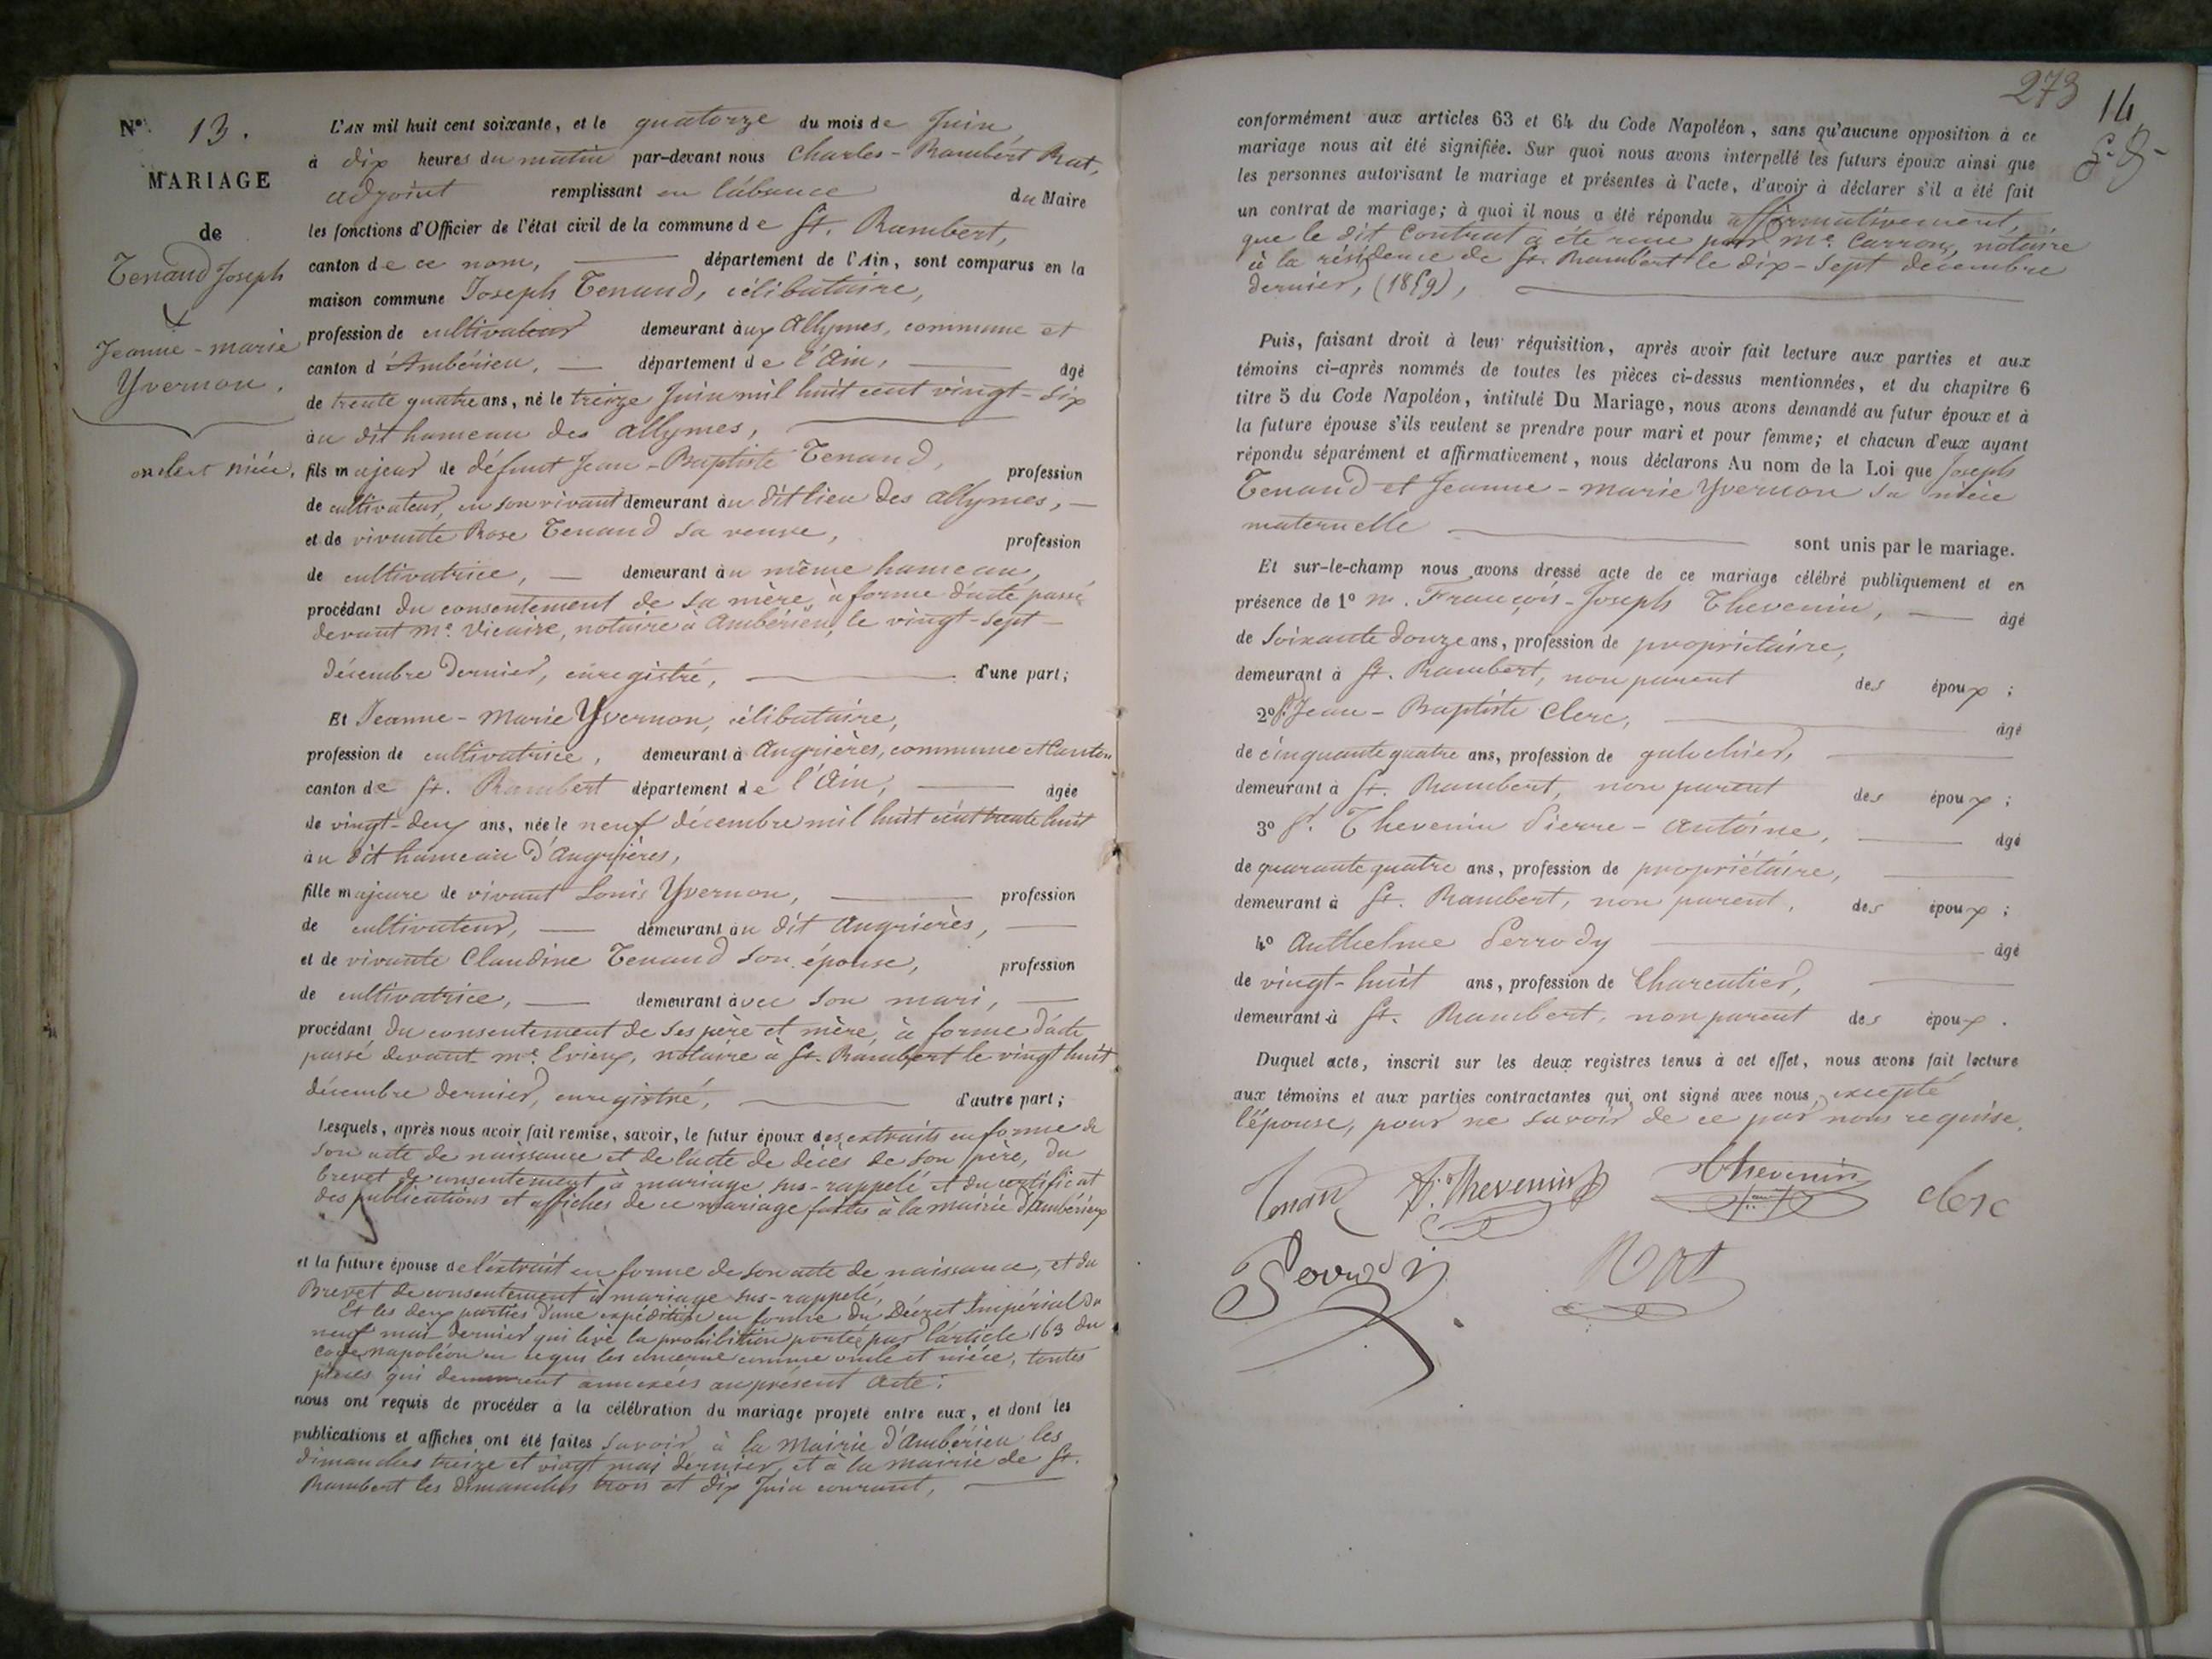 N° 13.
MARIAGE
de
Tenand Joseph
&
Jeanne-marie
Yvernon.
oncle et nièce.
L'AN mil huit cent soixante, et le quatorze du mois de Juin,
à dix heures du matin par-devant nous Charles-Rambert Rat,
adjoint remplissant en l'absence du Maire
les fonctions d'Officier de l'état civil de la commune de St. Rambert,
canton de ce nom, département de l'Ain, sont comparus en la
maison commune Joseph Tenand, célibataire,
profession de cultivateur demeurant aux Allymes, commune et
canton d'Ambérieu, département de l'Ain, âgé
de trente quatre ans, né le treize Juin mil huit cent vingt-six
au dit hameau des allymes,
fils majeur de défunt Jean-Baptiste Tenand, profession
de cultivateur, en son vivant demeurant au dit lieu des allymes,
et de vivante Rose Tenand sa veuve, profession
de cultivatrice, demeurant au même hameau,
procédant du consentement de sa mère, à forme d'acte passé
devant Me. Vicaire, notaire à Ambérieu, le vingt-sept
décembre dernier, enregistré, d'une part;
Et Jeanne-Marie Yvernon, célibataire,
profession de cultivatrice, demeurant à Angrières, commune et canton
canton de St. Rambert département de l'Ain, âgée
de vingt-deux ans, née le neuf décembre mil huit cent trente huit
au dit hameau d'Angrières,
fille majeure de vivant Louis Yvernon, profession
de cultivateur, demeurant au dit Angrières,
et de vivante Claudine Tenand son épouse, profession
de cultivatrice, demeurant avec son mari,
procédant du consentement de ses père et mère, à forme d'acte
passé devant me. Evieux, notaire à St. Rambert le vingt huit
décembre dernier, enregistré, d'autre part;
Lesquels, après nous avoir fait remise, savoir, le futur époux des extraits en forme de
son acte de naissance et de l'acte de décès de son père, du
brevet de consentement à mariage sus-rappelé et du certificat
des publications et affiches de ce mariage faites à la mairie d'Ambérieux
et la future épouse de l'extrait en forme de son acte de naissance, et du
Brevet de consentement à mariage sus-rappelé,
Et les deux parties d'une expédition en forme du Décret Impérial du
neuf mai dernier qui lève la prohibition portée par l'article 163 du
code napoléon en ce qui les concerne comme oncle et nièce, toutes
pièces qui demeurent annexées au présent acte;
nous ont requis de procéder à la célébration du mariage projeté entre eux, et dont les
publications et affiches ont été faites savoir à la Mairie d'Ambérieu les
dimanches treize et vingt mai dernier, et à la mairie de St.
Rambert les dimanches trois et dix Juin courant,
273
14
conformément aux articles 63 et 64 du Code Napoléon, sans qu'aucune opposition à ce
mariage nous ait été signifiée. Sur quoi nous avons interpellé les futurs époux ainsi que
les personnes autorisant le mariage et présentes à l'acte, d'avoir à déclarer s'il a été fait
un contrat de mariage; à quoi il nous a été répondu affirmativement,
que le dit contrat a été reçu par Me. Carron, notaire
à la résidence de St. Rambert le dix-sept décembre
dernier, (1859),
Puis, faisant droit à leur réquisition, après avoir fait lecture aux parties et aux
témoins ci-après nommés de toutes les pièces ci-dessus mentionnées, et du chapitre 6
titre 5 du Code Napoléon, intitulé Du Mariage, nous avons demandé au futur époux et à
la future épouse s'ils veulent se prendre pour mari et pour femme; et chacun d'eux ayant
répondu séparément et affirmativement, nous déclarons Au nom de la Loi que Joseph
Tenand et Jeanne-Marie Yvernon sa nièce
maternelle sont unis par le mariage.
Et sur-le-champ nous avons dressé acte de ce mariage célébré publiquement et en
présence de 1° M. François-Joseph Thevenin, âgé
de soixante douze ans, profession de propriétaire,
demeurant à St. Rambert, non parent des époux;
2° S. Jean-Baptiste Clerc, âgé
de cinquante quatre ans, profession de galochier,
demeurant à St. Rambert, non parent des époux;
3° S. Thevenin Pierre-Antoine, âgé
de quarante quatre ans, profession de propriétaire,
demeurant à St. Rambert, non parent, des époux;
4° Anthelme Perrody âgé
de vingt-huit ans, profession de Charcutier,
demeurant à St. Rambert, non parent des époux.
Duquel acte, inscrit sur les deux registres tenus à cet effet, nous avons fait lecture
aux témoins et aux parties contractantes qui ont signé avec nous, excepté
l'épouse, pour ne savoir de ce par nous requise.
Tenand F. Thevenin Thevenin clerc
Perrody Rat